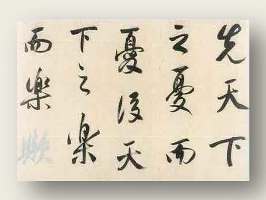 先天下
之憂而
憂後天
下之樂
而樂